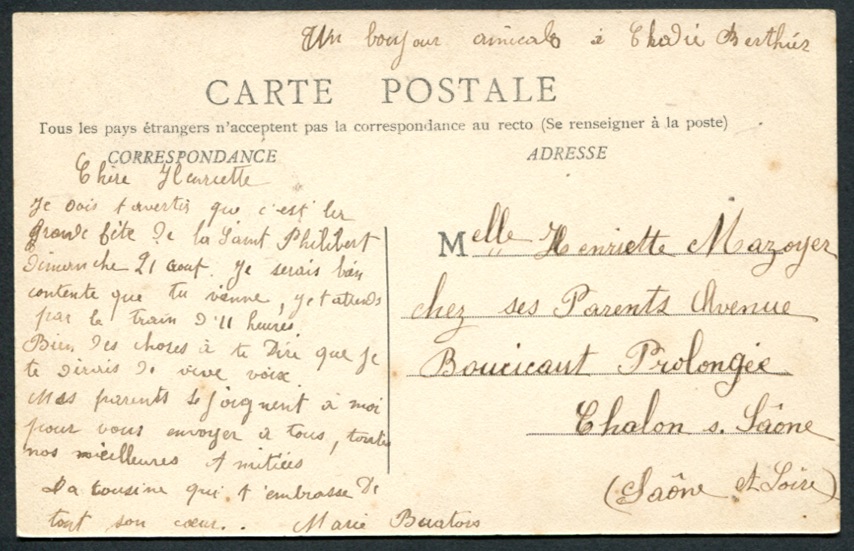 Un bonjour amicale à Berthier
CARTE POSTALE
Tous les pays étrangers n'acceptent pas la correspondance au recto (Se renseigner à la poste)
CORRESPONDANCE
ADRESSE
Chère Henriette
Je dois t'avertir que c'est la
grande fête de la Saint Philibert
dimanche 21 aout. Je serais bien
contente que tu vienne, je t'attends
par le train d'11 heures
Bien des choses à te dire que je
te dirais de vive voix
Mes parents se joignent à moi
pour vous envoyer à tous, toutes
nos meilleures Amitiées
La cousine qui t'embrasse de
tout son cœur. . Marie
Melle Henriette Mazoyer
chez ses Parents Avenue
Boucicaut Prolongée
Chalon s. Saône
(Saône et Loire)